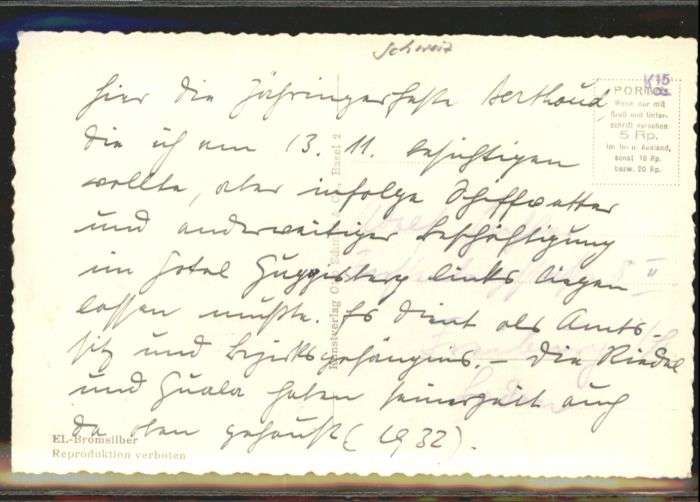 Schweiz
hier die Zähringerfeste Berthoud,
die ich am 13. 11. besichtigen
wollte, aber infolge Schiffwetter
und anderweitiger Beschäftigung
im Hotel Guggisberg links liegen
lassen mußte. Es dient als Amts-
sitz und Bezirksgefängnis. – Die Riedel
und Guala haben seinerzeit auch
da oben gehaust (1932).
K15
PORTO
Wenn nur mit
Gruß und Unter-
schrift versehen
5 Rp.
im In- u. Ausland,
sonst 10 Rp.
bezw. 20 Rp.
Kunstverlag Basel 2
EL-Bromsilber
Reproduktion verboten